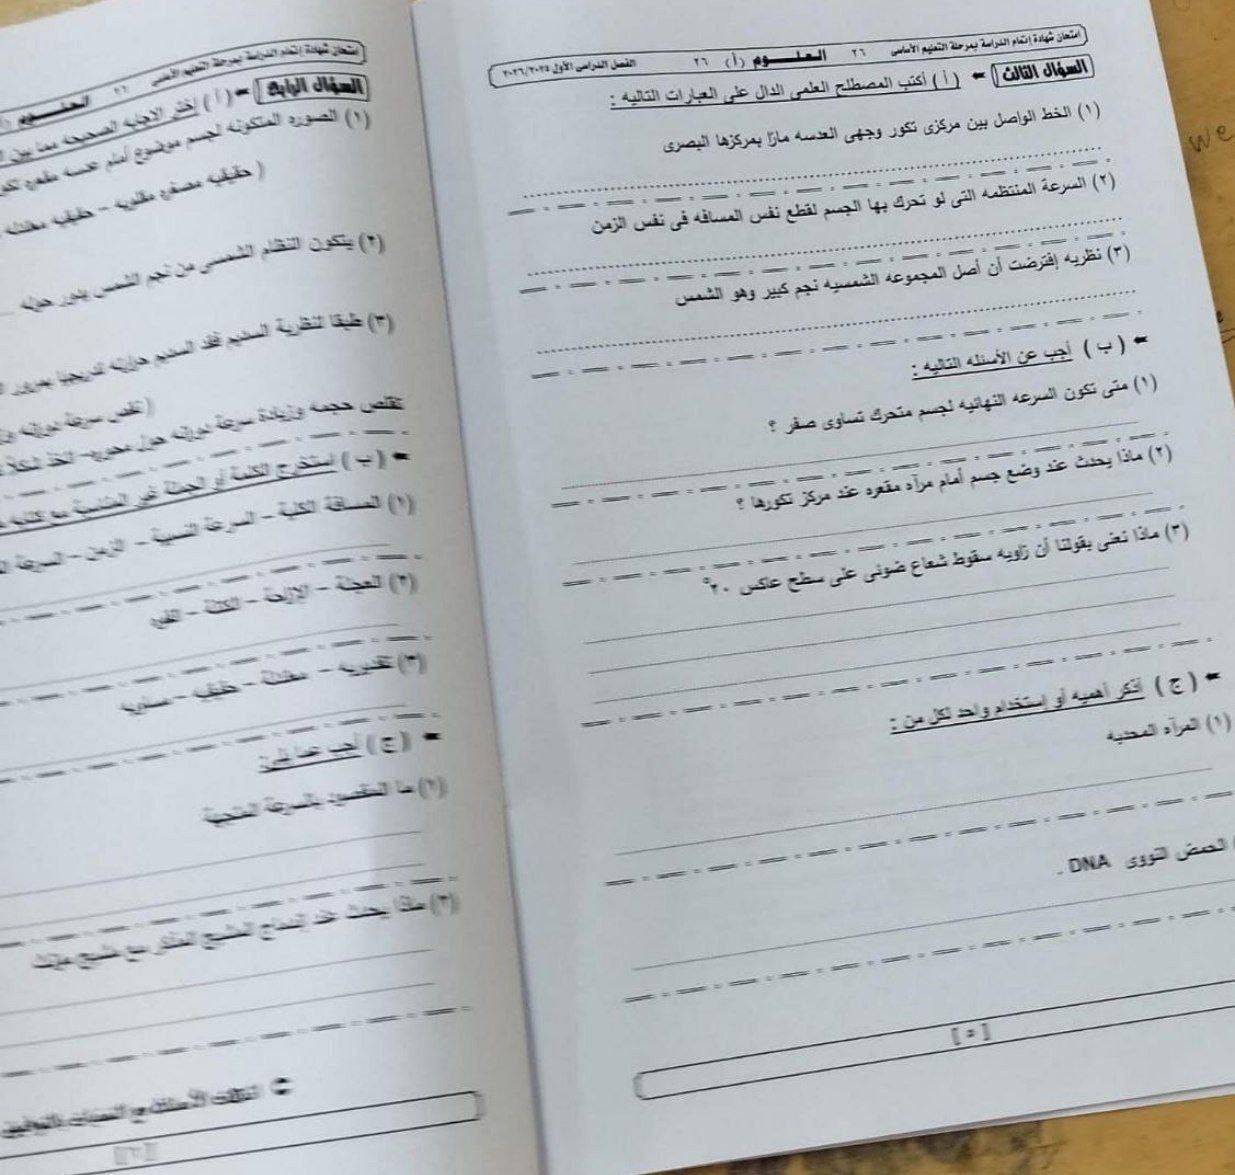 امتحان شهادة إتمام الدراسة بمرحلة التعليم الأساسى ٢٦ العلـــوم (أ) ٢٦ الفصل الدراسى الأول ٢٠٢٦/٢٠٢٥
السؤال الثالث ( أ ) أكتب المصطلح العلمى الدال على العبارات التاليه :
(١) الخط الواصل بين مركزى تكور وجهى العدسه مارًا بمركزها البصرى
(٢) السرعة المنتظمه التى لو تحرك بها الجسم لقطع نفس المسافه فى نفس الزمن
(٣) نظريه إفترضت أن أصل المجموعه الشمسيه نجم كبير وهو الشمس
( ب ) أجب عن الأسئله التاليه :
(١) متى تكون السرعه النهائيه لجسم متحرك تساوى صفر ؟
(٢) ماذا يحدث عند وضع جسم أمام مرآه مقعره عند مركز تكورها ؟
(٣) ماذا نعنى بقولنا أن زاويه سقوط شعاع ضوئى على سطح عاكس ٢٠°
( ج ) أذكر أهميه أو إستخدام واحد لكل من :
(١) المرآه المحدبه
الحمض النووى DNA .
[ ٥ ]
امتحان شهادة إتمام الدراسة بمرحلة التعليم الأساسى ٢٦
العلـــوم (أ)
السؤال الرابع ( أ ) إختر الاجابه الصحيحه مما بين
(١) الصوره المتكونه لجسم موضوع أمام عدسه مقعره
حقيقيه مصغره مقلوبه - حقيقيه معتدله
(٢) يتكون النظام الشمسى من نجم الشمس يدور حوله
(٣) طبقا لنظرية السديم فقد السديم حرارته تدريجيا بمرور
( نقص سرعة دورانه
تقلص حجمه وزيادة سرعة دورانه حول محوره - اتخذ شكلا
( ب ) استخرج الكلمة أو الجملة غير المناسبة مع كتابه
(١) المسافة الكلية - السرعة النسبية - الزمن - السرعة
(٢) العجلة - الإزاحة - الكتلة - القوه
(٣) تقديريه - معتدلة - حقيقيه - مساويه
( ج ) أجب عما يلى :
(١) ما المقصود بالسرعة المتجهة
(٢) ماذا يحدث عند إندماج المشيج المذكر مع مشيج مؤنث
انتهت الأسئلة مع التمنيات بالتوفيق
[ ٦ ]
we